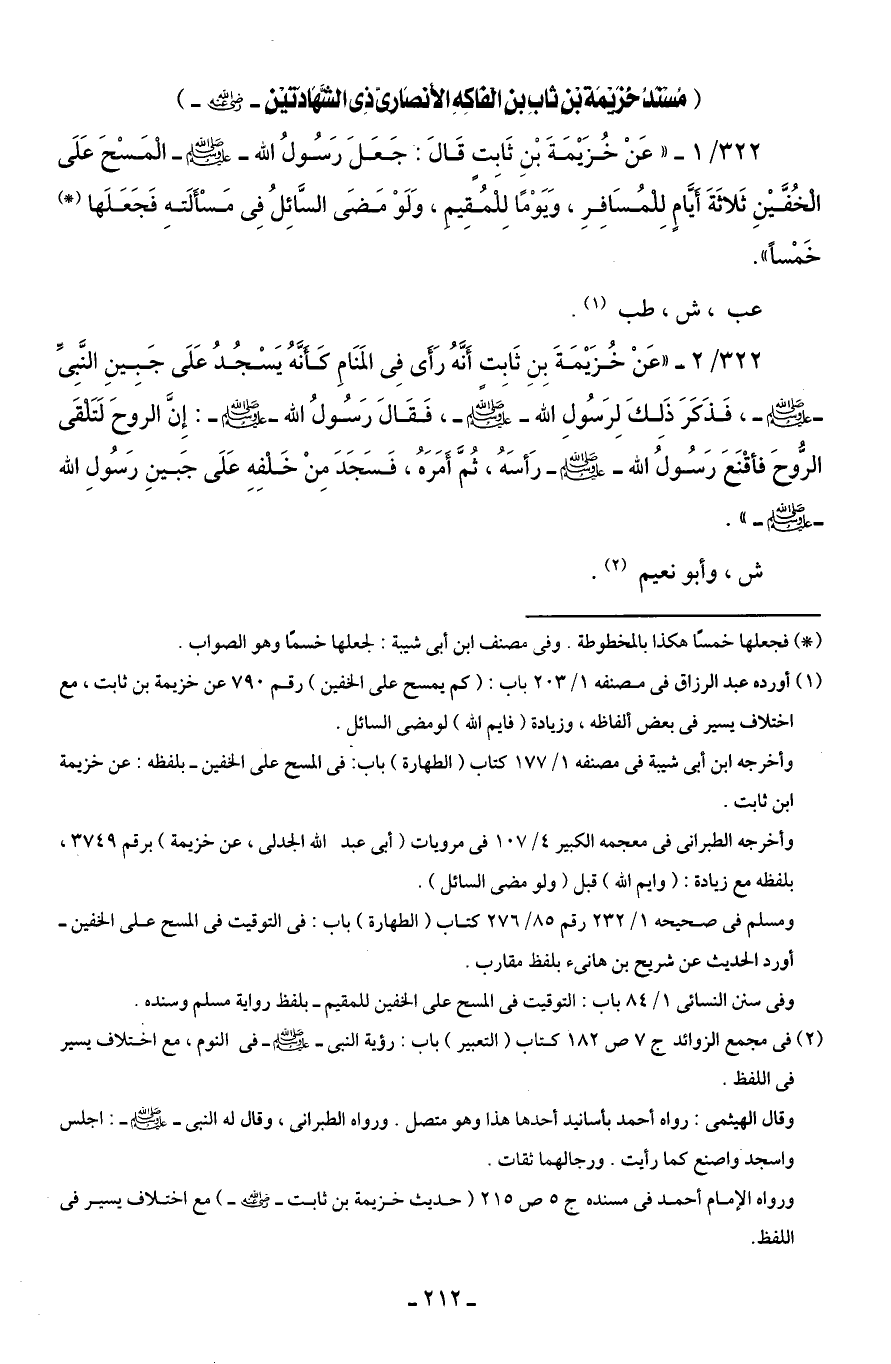 ( مُسْنَدُ خُزَيْمَةَ بْنِ ثَابِ بْنِ الفَاكِهِ الأَنْصَارِىِّ ذِى الشَّهَادَتَيْنِ - رضي الله عنه - )
٣٢٢/ ١ - « عَنْ خُزَيْمَةَ بْنِ ثَابِتٍ قَالَ : جَعَلَ رَسُولُ الله - ﷺ - الْمَسْحَ عَلَى
الْخُفَّيْنِ ثَلاثَةَ أَيَّامٍ لِلْمُسَافِرِ ، وَيَوْمًا لِلْمُقِيمِ ، وَلَوْ مَضَى السَّائِلُ فِى مَسْأَلَتهِ فَجَعَلَها (*)
خَمْساً».
عب ، ش ، طب (١) .
٣٢٢/ ٢ - «عَنْ خُزَيْمَةَ بنِ ثَابتٍ أَنَّهُ رَأَى فِى المَنَامِ كَأَنَّهُ يَسْجُدُ عَلَى جَبِينِ النَّبِىِّ
- ﷺ - ، فَذَكَرَ ذَلِكَ لِرَسُولِ الله - ﷺ - ، فَقَالَ رَسُولُ الله - ﷺ - : إِنَّ الروحَ لَتَلْقَى
الرُّوحَ فأقْنَعَ رَسُولُ الله - ﷺ - رَأسَهُ ، ثُمَّ أَمَرَهُ ، فَسَجَدَ مِنْ خَلْفِهِ عَلَى جَبينِ رَسُولِ الله
- ﷺ - » .
ش ، وأبو نعيم (٢) .
(*) فجعلها خمسًا هكذا بالمخطوطة . وفى مصنف ابن أبى شيبة : لجعلها خسمًا وهو الصواب .
(١) أورده عبد الرزاق فى مصنفه ١/ ٢٠٣ باب : ( كم يمسح على الخفين ) رقم ٧٩٠ عن خزيمة بن ثابت ، مع
اختلاف يسير فى بعض ألفاظه ، وزيادة ( فايم الله ) لومضى السائل .
وأخرجه ابن أبى شيبة فى مصنفه ١/ ١٧٧ كتاب ( الطهارة ) باب: فى المسح على الخفين - بلفظه : عن خزيمة
ابن ثابت .
وأخرجه الطبرانى فى معجمه الكبير ٤/ ١٠٧ فى مرويات ( أبى عبد الله الجدلى ، عن خزيمة ) برقم ٣٧٤٩ ،
بلفظه مع زيادة : ( وايم الله ) قبل ( ولو مضى السائل ) .
ومسلم فى صحيحه ١/ ٢٣٢ رقم ٨٥/ ٢٧٦ كتاب ( الطهارة ) باب : فى التوقيت فى المسح على الخفين -
أورد الحديث عن شريح بن هانىء بلفظ مقارب .
وفى سنن النسائى ١/ ٨٤ باب : التوقيت فى المسح على الخفين للمقيم - بلفظ رواية مسلم وسنده .
(٢) فى مجمع الزوائد ج ٧ ص ١٨٢ كتاب ( التعبير ) باب : رؤية النبى - ﷺ - فى النوم ، مع اختلاف يسير
فى اللفظ .
وقال الهيثمى : رواه أحمد بأسانيد أحدها هذا وهو متصل . ورواه الطبرانى ، وقال له النبى - ﷺ - : اجلس
واسجد واصنع كما رأيت . ورجالهما ثقات .
ورواه الإمام أحمد فى مسنده ج ٥ ص ٢١٥ ( حديث خزيمة بن ثابت - رضي الله عنه - ) مع اختلاف يسير فى
اللفظ.
- ٢١٢ -